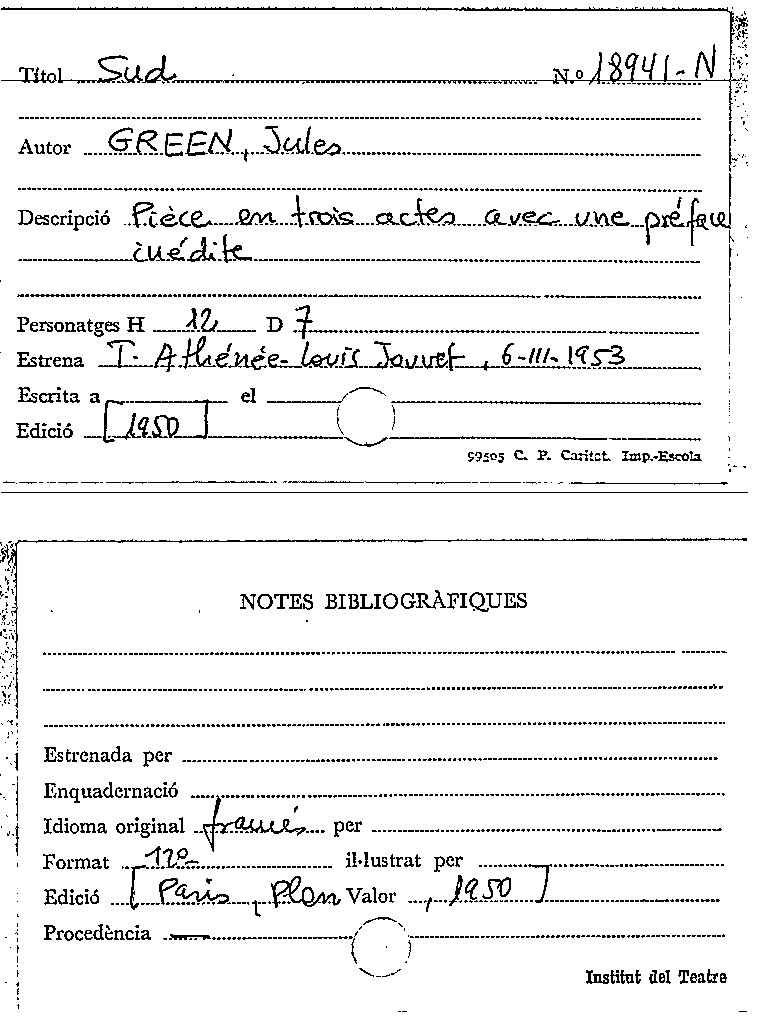 Títol Sud N.º 18941-N
Autor GREEN, Jules
Descripció Pièce en trois actes avec une préface
inédite
Personatges H 12 D 7
Estrena T. Athénée-Louis Jouvet, 6-III-1953
Escrita a el
Edició [1950]
99505 C. P. Caritat. Imp.-Escola
NOTES BIBLIOGRÀFIQUES
Estrenada per
Enquadernació
Idioma original francés per
Format 12º il·lustrat per
Edició [Paris, Plon Valor , 1950]
Procedència —
Institut del Teatre